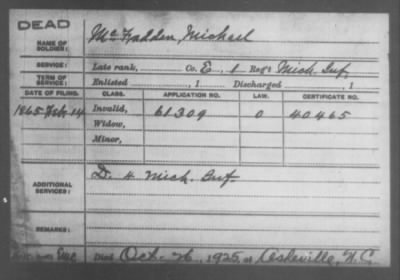 DEAD
NAME OF SOLDIER: McFadden, Michael
SERVICE: Late rank, Co. E, 1 Reg't Mich. Inf.
TERM OF SERVICE: Enlisted , 1 Discharged , 1
DATE OF FILING. CLASS. APPLICATION NO. LAW. CERTIFICATE NO.
1865 Feb. 14 Invalid, 61309 O 40465
Widow,
Minor,
ADDITIONAL SERVICES: D. 4 Mich. Inf.
REMARKS:
Died Oct. 26, 1925, at Asheville, N.C.